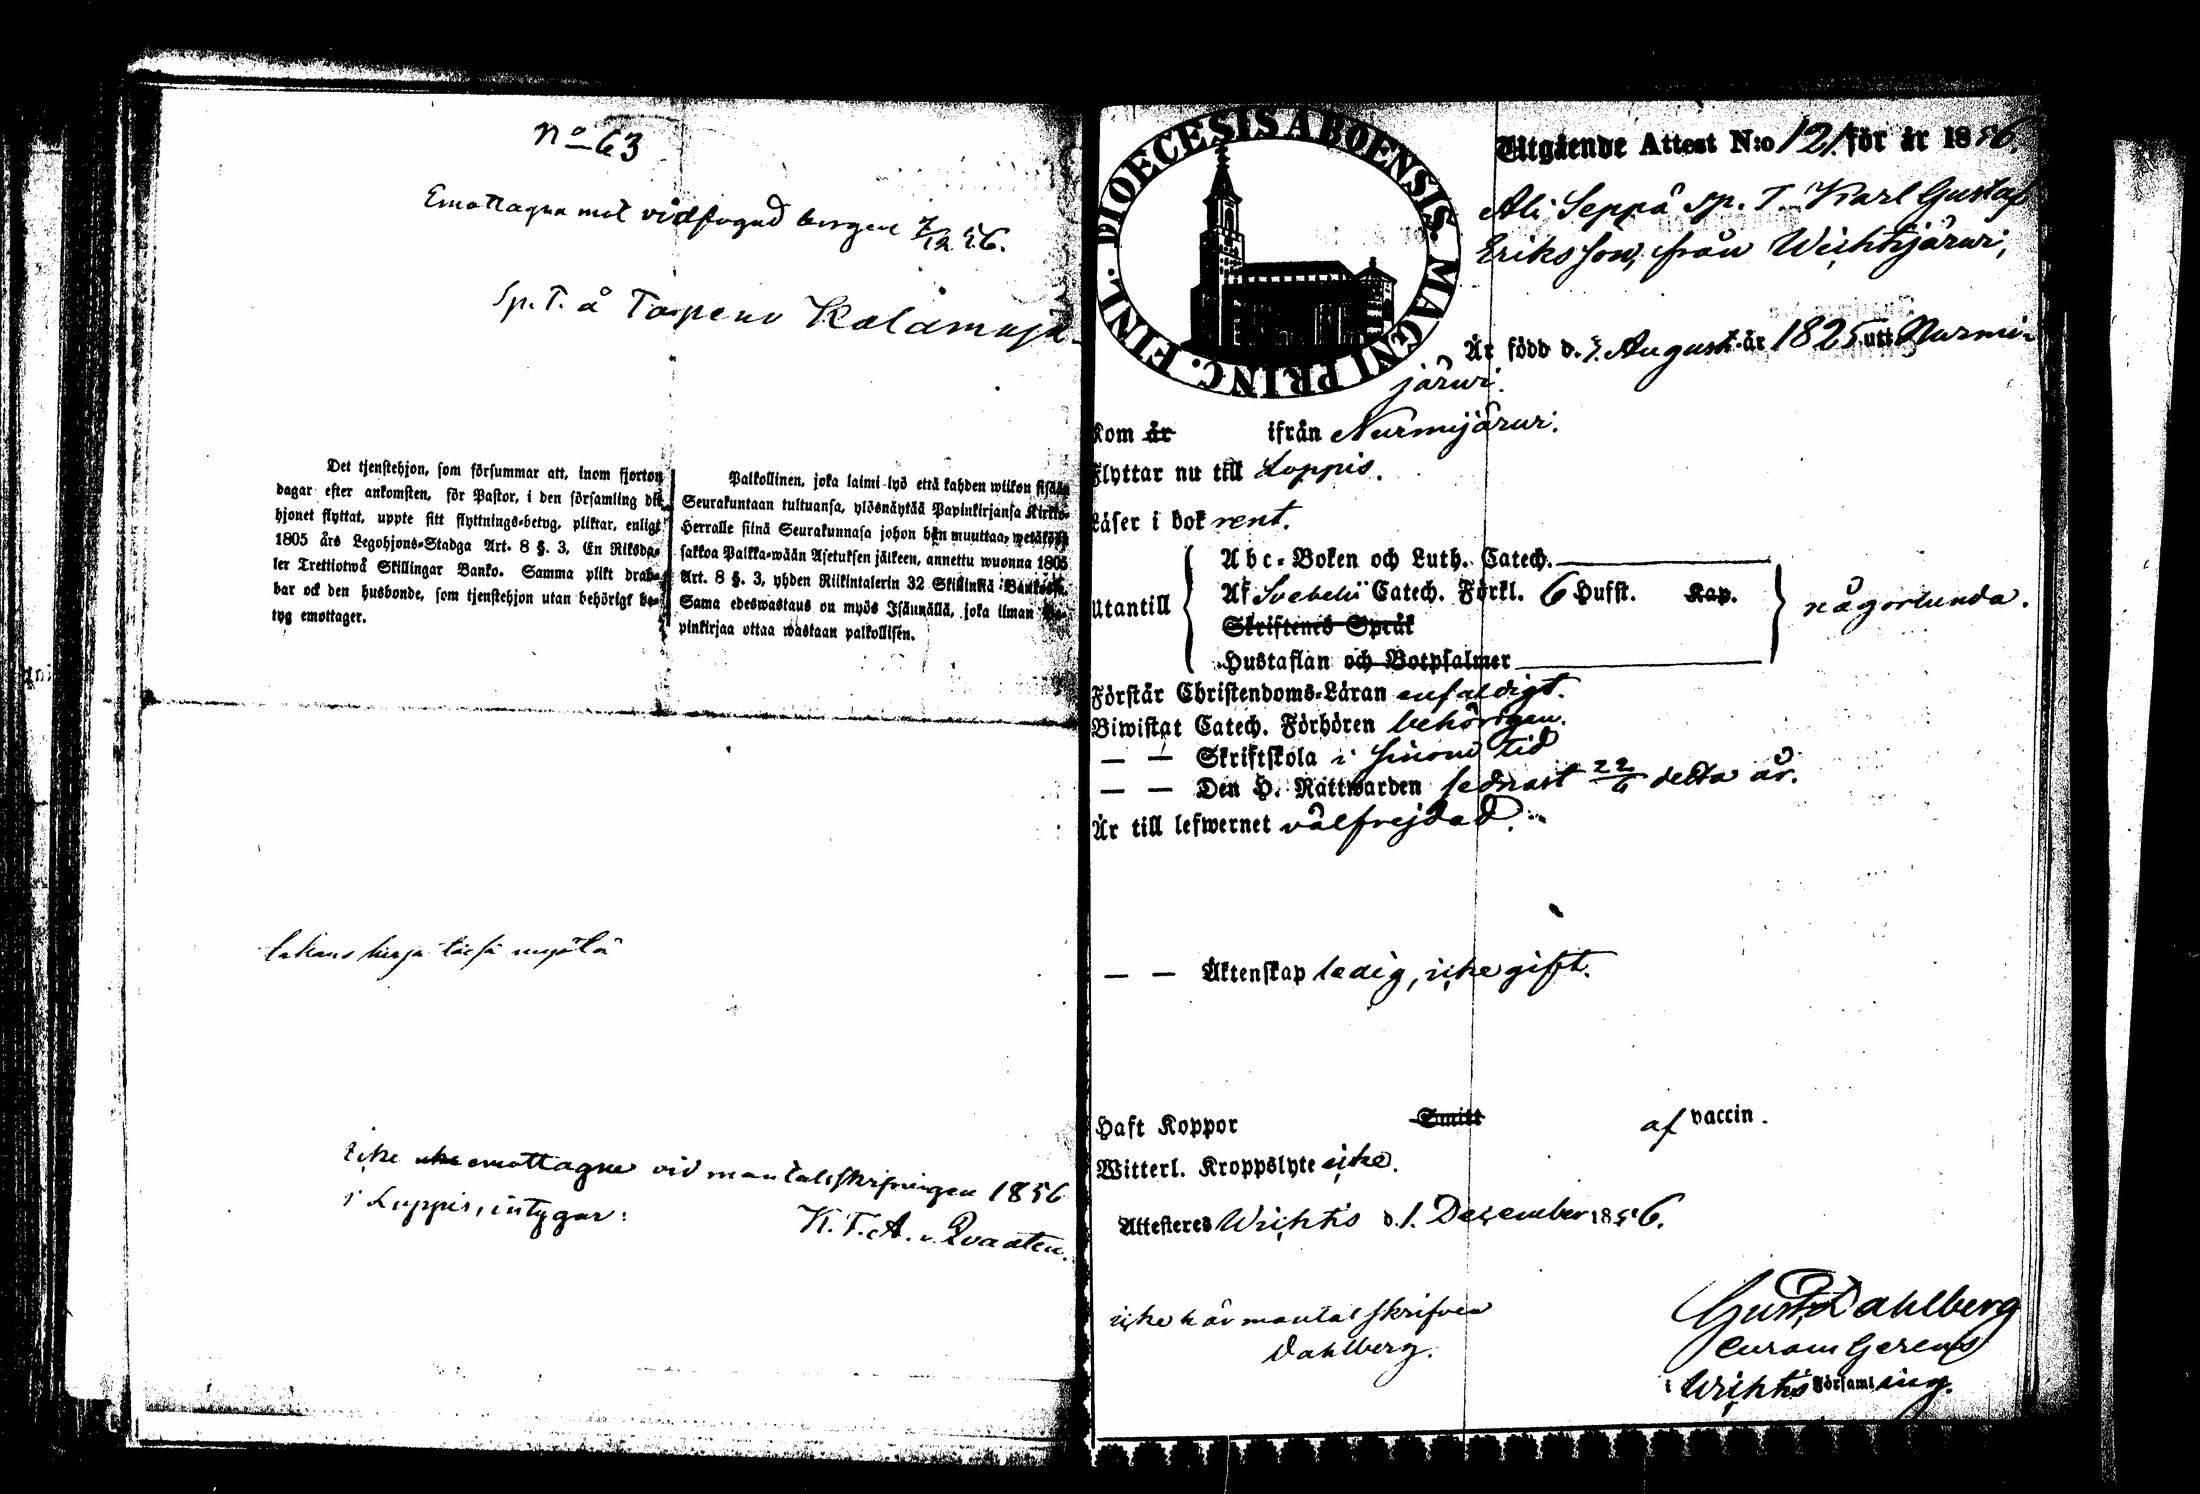 No 63
Emottagen mot vidfogad borgen 7/12 56.
Sp. T. å Torpenu Kalamuja
Det tjenstehjon, som försummar att, inom fjorton
dagar efter ankomsten, för Pastor, i den församling dit
hjonet flyttat, uppte sitt flyttnings-betyg, pliktar, enligt
1805 års Legohjons-Stadga Art. 8 §. 3, En Riksda-
ler Trettiotwå Skillingar Banko. Samma plikt drab-
bar ock den husbonde, som tjenstehjon utan behörigt be-
tyg emottager.
Palkollinen, joka laimi-lyö että kahden wiikon sisään
Seurakuntaan tultuansa, ylösnäytää Papinkirjansa Kirkko-
Herralle siinä Seurakunnasa johon hän muuttaa, wetäköön
sakkoa Palkka-wään Asetuksen jälkeen, annettu wuonna 1805
Art. 8 §. 3, yhden Riikintalerin 32 Skillinkiä Bankosa.
Sama edeswastaus on myös Isäunällä, joka ilman Pa-
pinkirjaa ottaa wastaan palkollisen.
takaus kirja täesä myötä
Icke emottagne vid mantalsskrifningen 1856
i Loppis, intygar:
K. F. A. v. Qvanten.
DIOECESIS ABOENSIS MAGNI PRINC. FINL.
Utgående Attest N:o 121 för år 1856.
Ali Seppä sp. T. Karl Gustaf
Eriksson, från Wichtijärwi,
Är född d. 7. August år 1825 uti Nurmi-
järwi.
Kom år ifrån Nurmijärwi.
Flyttar nu till Loppis.
Läser i bok rent.
Utantill
Abc-Boken och Luth. Catech.
Af Svebelii Catech. Förkl. 6 Hufst. Kap.
Skriftenes Språk
Hustaflan och Botpsalmer
någorlunda.
Förstår Christendoms-Läran enfaldigt.
Biwistat Catech. Förhören behörigen.
— — Skriftskola i sinom tid
— — Den H. Nattwarden sednast 22/6 detta år.
Är till lefwernet välfrejdad.
— — Äktenskap ledig, icke gift.
Haft Koppor Smitt af vaccin.
Witterl. Kroppslyte icke.
Attesteres Wichtis d. 1. December 1856.
icke här mantalsskrifven
Dahlberg.
Gust. Dahlberg
Curam Gerens
i Wichtis Församling.